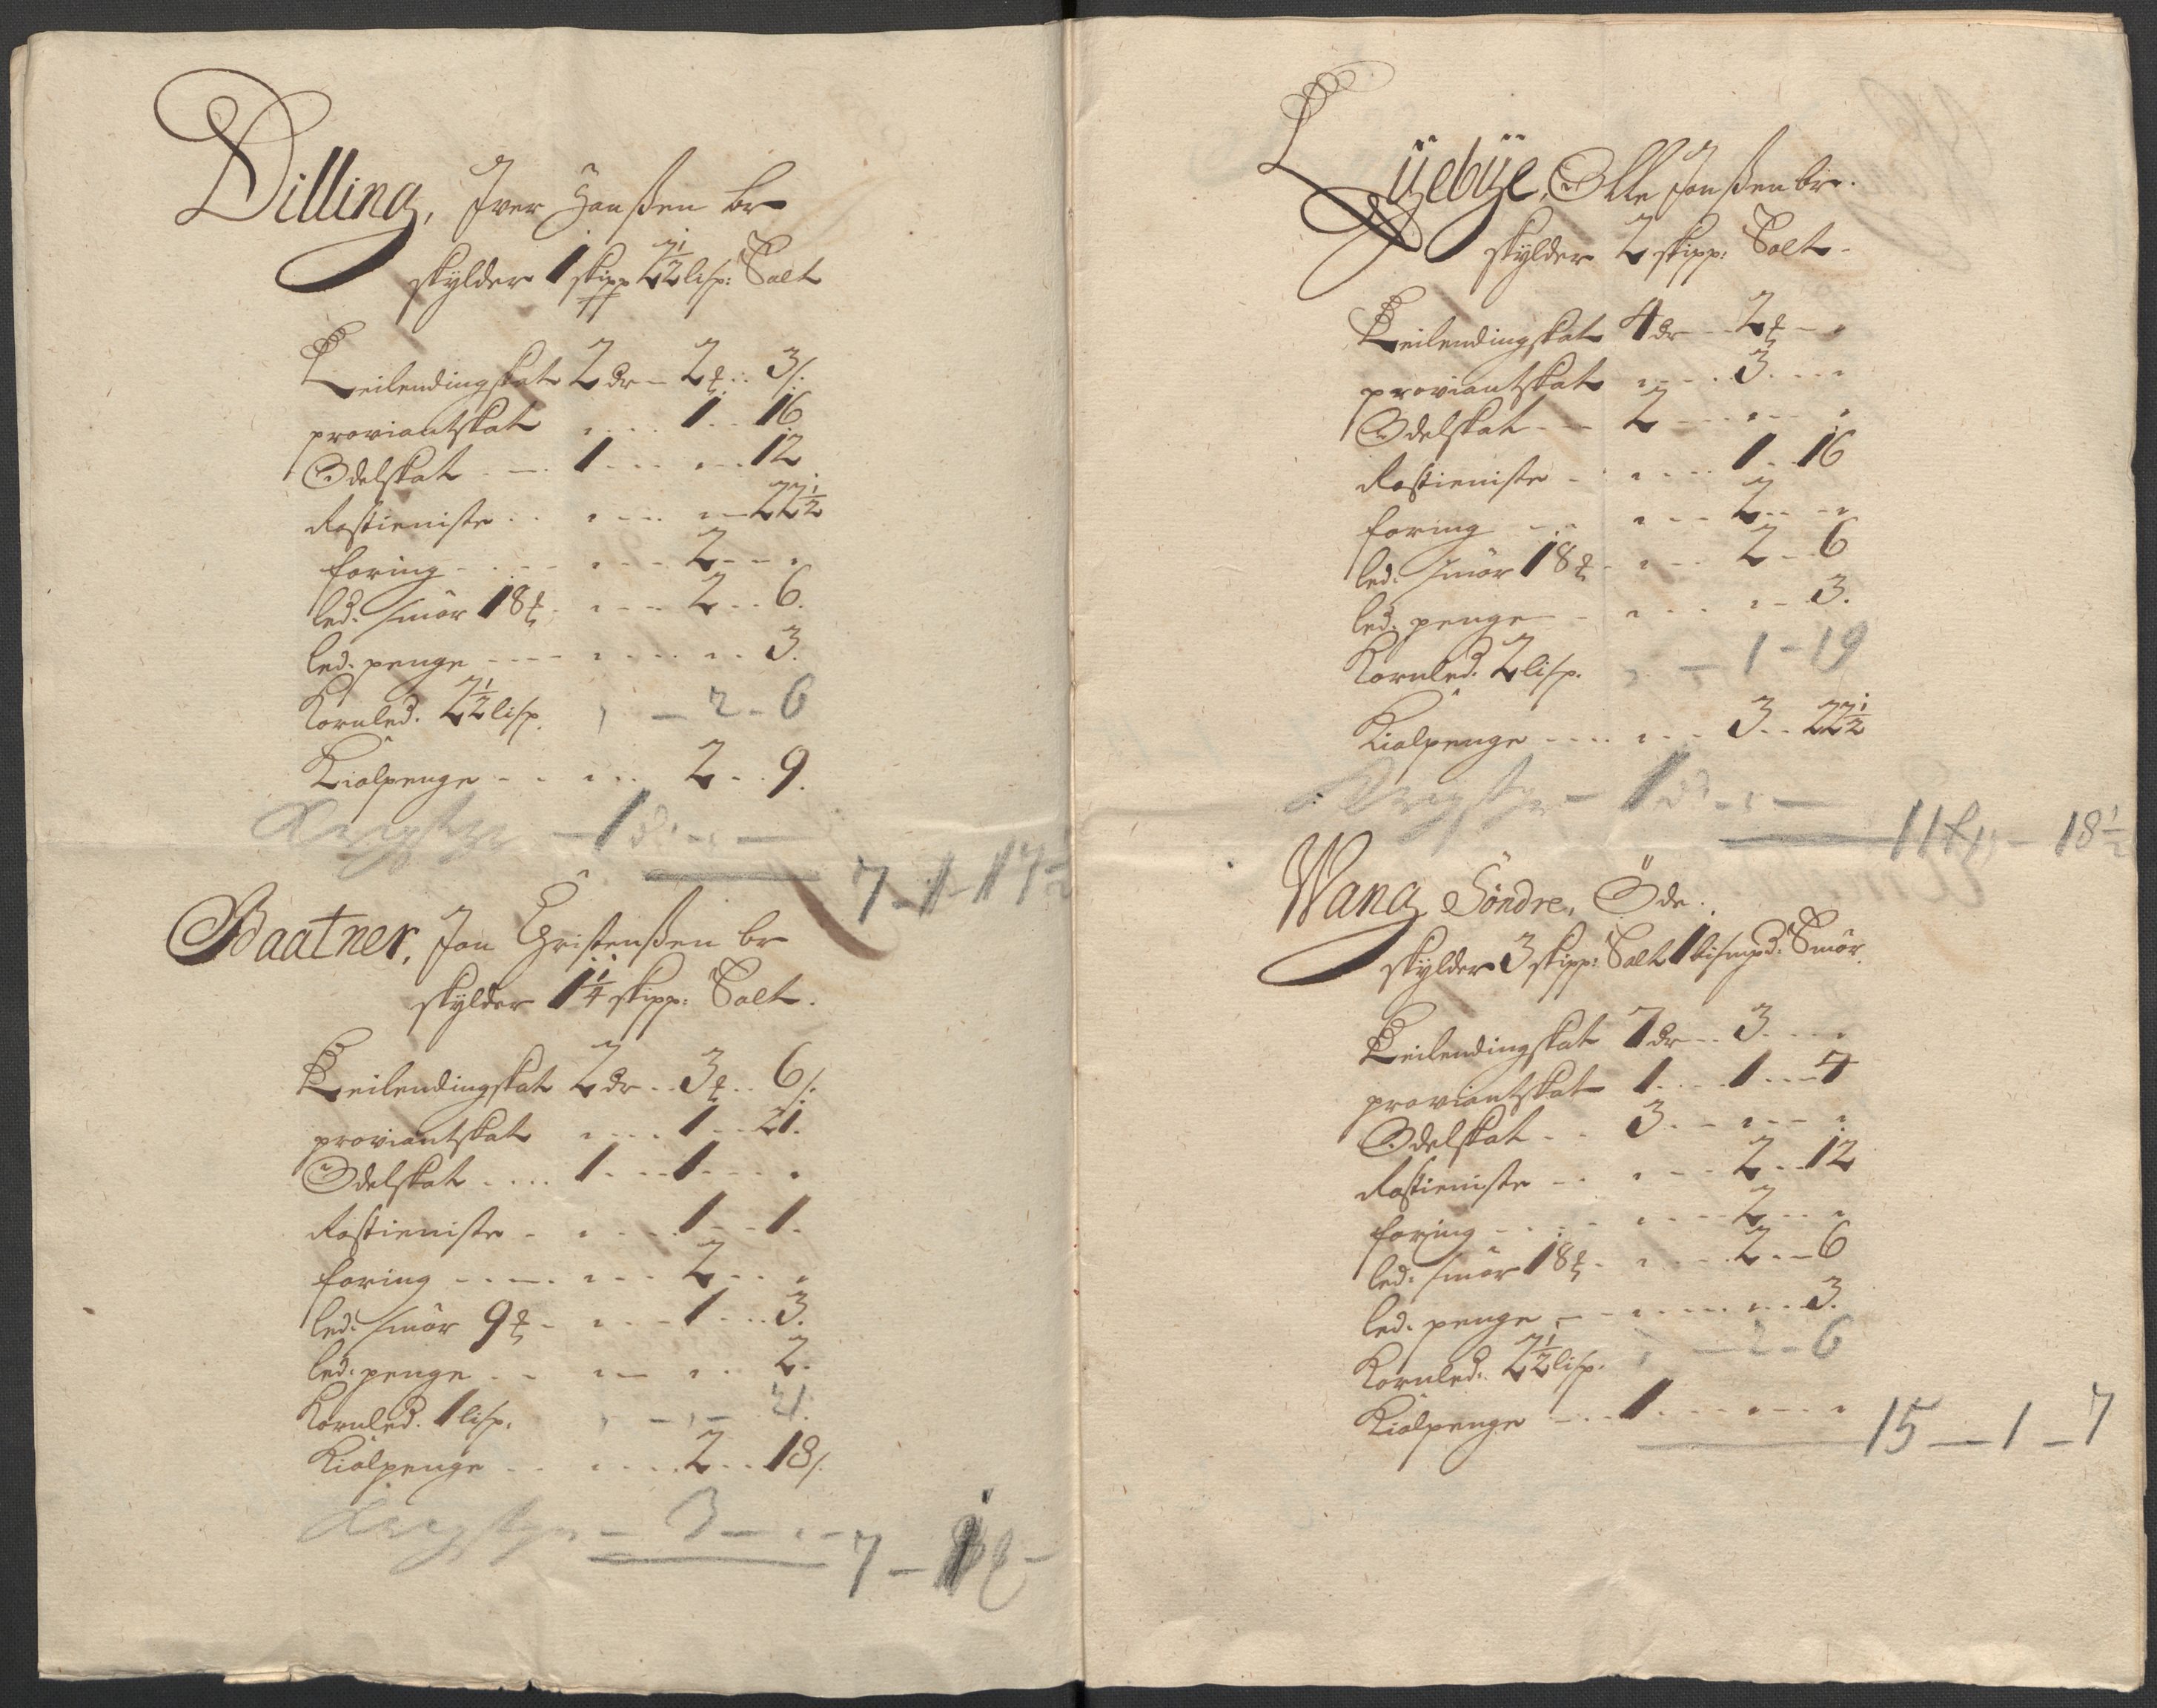 Dilling, Jver Hanßen br
skylder 1 skipp 2½ lisp: Salt
Leilendingskat 2 dr - 2 ꝑ .. 3 s.
proviantskat .... 1 .. 16
Odelskat .... 1 .... 12
Rostieniste .. .... 22½
foring ..... 2 ...
led: smör 18 ꝑ .... 2 .. 6.
led: penge ..... 3.
Kornled. 2½ lisp. - 2 - 6
Kiölpenge .... 2 .. 9.
- 1 dr - - 
7 - 1 - 17½
Baatner, Jon Christenßen br
skylder 1¼ skipp: Salt.
Leilendingskat 2 dr .. 3 ꝑ .. 6 s.
proviantskat .... 1 .. 21.
Odelskat .... 1 ... 1 ...
Rostieniste .... 1 .. 1.
foring ..... 2 ...
led: smör 9 ꝑ .... 1 ... 3.
led: penge .... 2.
Kornled. 1 lisp. - - 21.
Kiölpenge .... 2 .. 18 s.
- 3 - -
7 -
Lÿebÿe, Olle Jonßen br.
skylder 2 skipp: Salt -
Leilendingskat 4 dr ... 2 ꝑ -
proviantskat .... 3 ....
Odelskat ... 2 ......
Rostieniste .... 1 .. 16
foring .... 2 ...
led: smör 18 ꝑ .... 2 .. 6
led: penge .... 3.
Kornled. 2 lisp. - 1 - 19
Kiölpenge .... 3 .. 22½
- 1 dr - -
11 - 18½
Wang Söndre, Öde.
skylder 3 skipp: Salt 1 bismpd: Smör.
Leilendingskat 7 dr .. 3 ....
proviantskat 1 ... 1 ... 4
Odelskat .. 3 .....
Rostieniste .... 2 .. 12
foring .... 2 ...
led: smör 18 ꝑ .... 2 .. 6
led: penge .... 3.
Kornled: 2½ lisp. - 2 - 6
Kiölpenge ... 1 .....
15 - 1 - 7